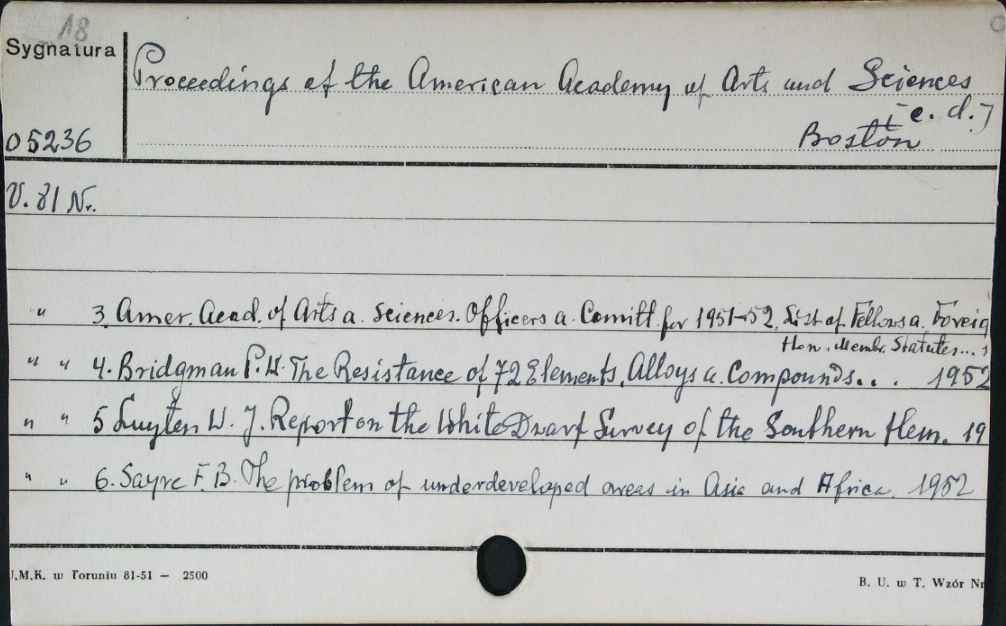 18
Sygnatura
Proceedings of the American Academy of Arts and Sciences
[c. d.]
05236
Boston
V. 81 Nr.
" 3. Amer. Acad. of Arts a. Sciences. Officers a. Comitt. for 1951-52. List of Fellows a. Foreig
Hon. Membr. Statutes...
" " 4. Bridgman P. W. The Resistance of 72 Elements, Alloys a. Compounds... 1952
" " 5 Luyten W. J. Report on the White Dwarf Survey of the Southern Hem. 19
" " 6. Sayre F. B. The problem of underdeveloped areas in Asia and Africa. 1952
U.M.K. w Toruniu 81-51 — 2500
B. U. w T. Wzór Nr